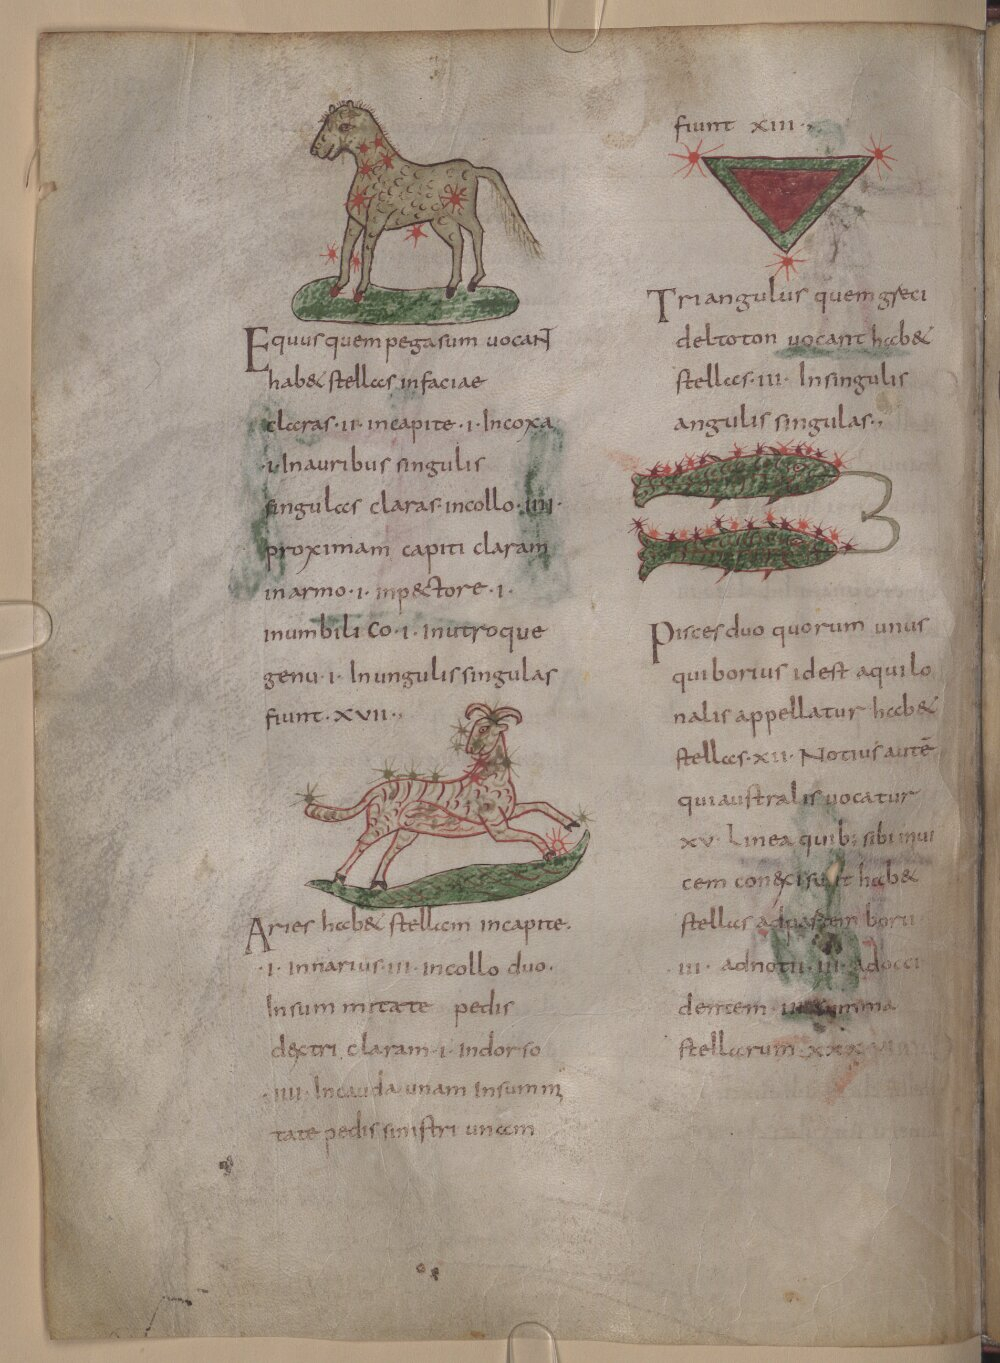 Equus quem pegasum uocant
hab& stellas in faciae
claras · ii · in capite · i · In coxa
· i · In auribus singulis
singulas claras · in collo · iiii ·
proximam capiti claram
in armo · i · in pectore · i ·
in umbilico · i · in utroque
genu · i · In ungulis singulas
fiunt · xvii ·
Aries hab& stellam in capite ·
· i · in narius · iii · in collo duo ·
In summitate pedis
dextri claram · i · in dorso
· iiii · In cauda unam In summi
tate pedis sinistri unam
fiunt xiii ·
Triangulus quem greci
deltoton uocant hab&
stellas · iii · In singulis
angulis singulas ·
Pisces duo quorum unus
qui borius id est aquilo
nalis appellatur hab&
stellas · xii · Notius autē
qui australis uocatur
xv · Linea quib; sibi inui
cem con&xi sunt hab&
stellas ad partem borii
iii · ad notii · iii · ad occi
dentem · iii · summa
stellarum ·